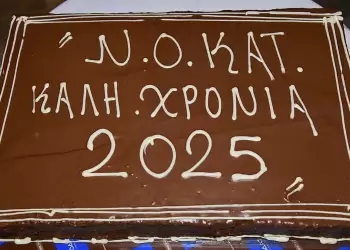 " Ν.Ο.ΚΑΤ.
ΚΑΛΗ.ΧΡΟΝΙΑ
2025 "